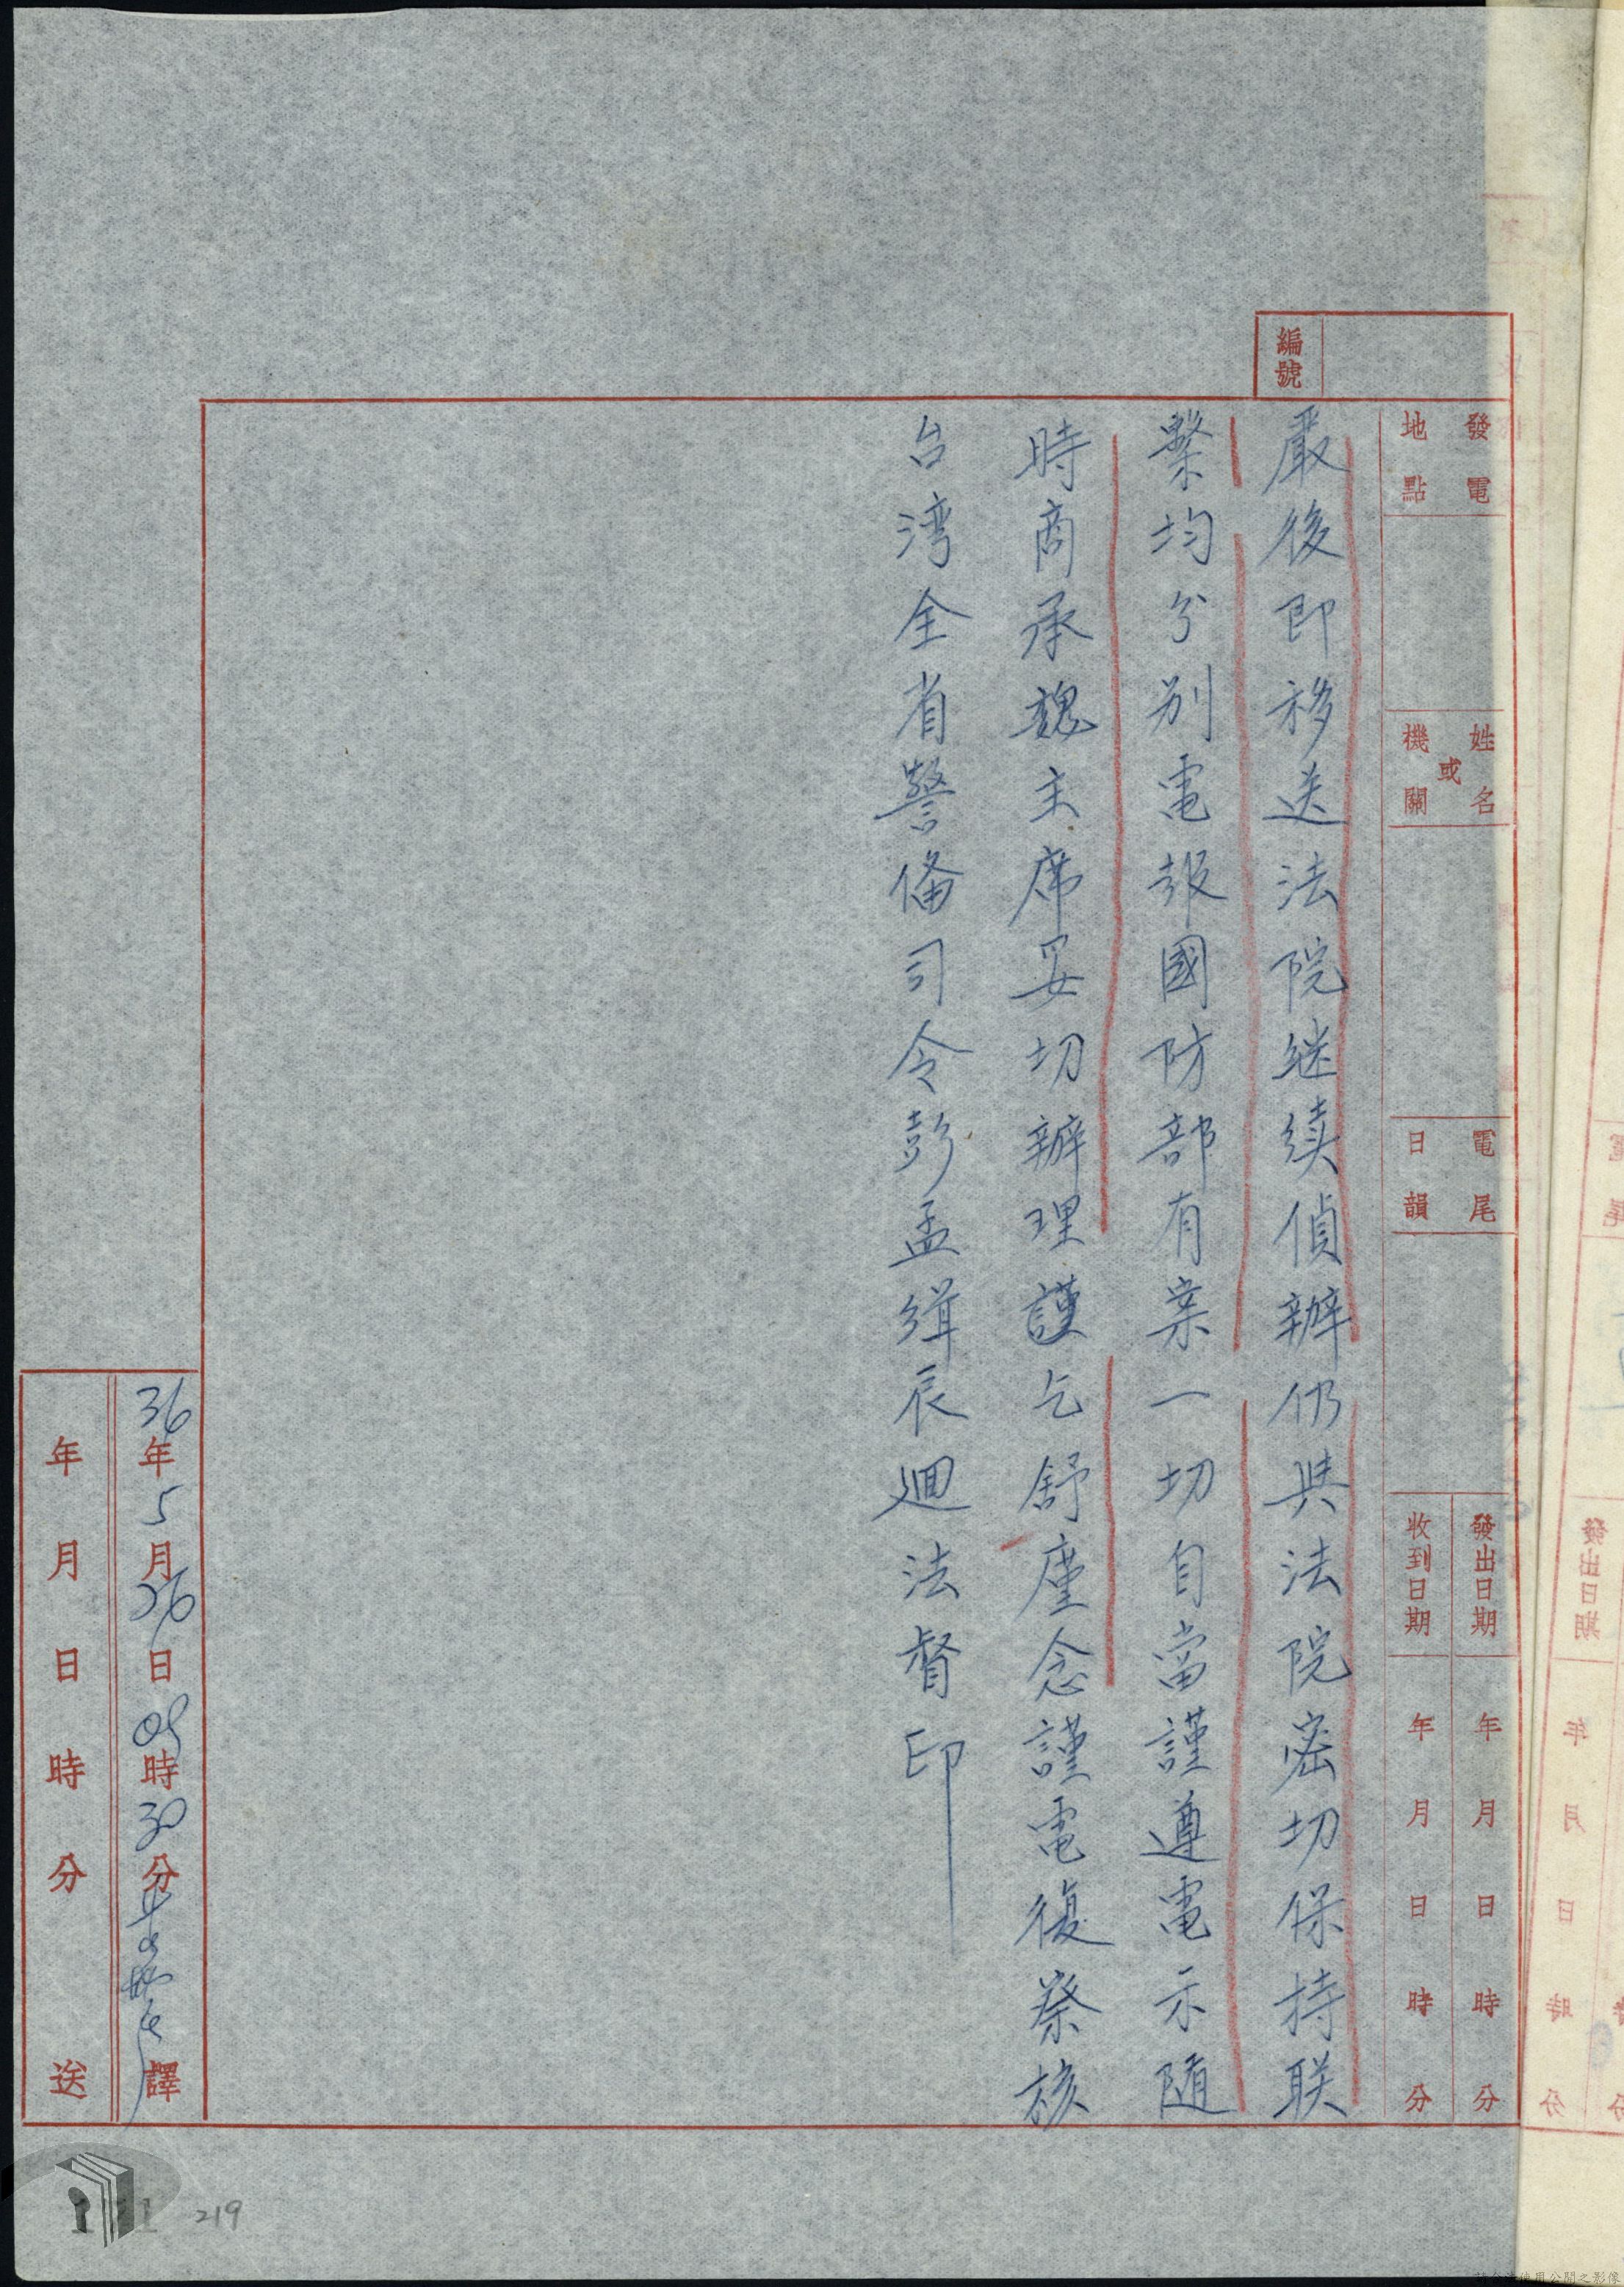 編號
發電地點
姓名或機關
電尾日韻
發出日期 年 月 日 時 分
收到日期 年 月 日 時 分
嚴後即移送法院继续偵辦仍與法院密切保持联
繫均分别電報國防部有案一切自當謹遵電示隨
時商承魏主席妥切辦理謹乞舒廑念謹電復察核
台湾全省警俻司令彭孟缉辰迴法督印
36年5月26日09時30分 譯
年月日時分 送
219